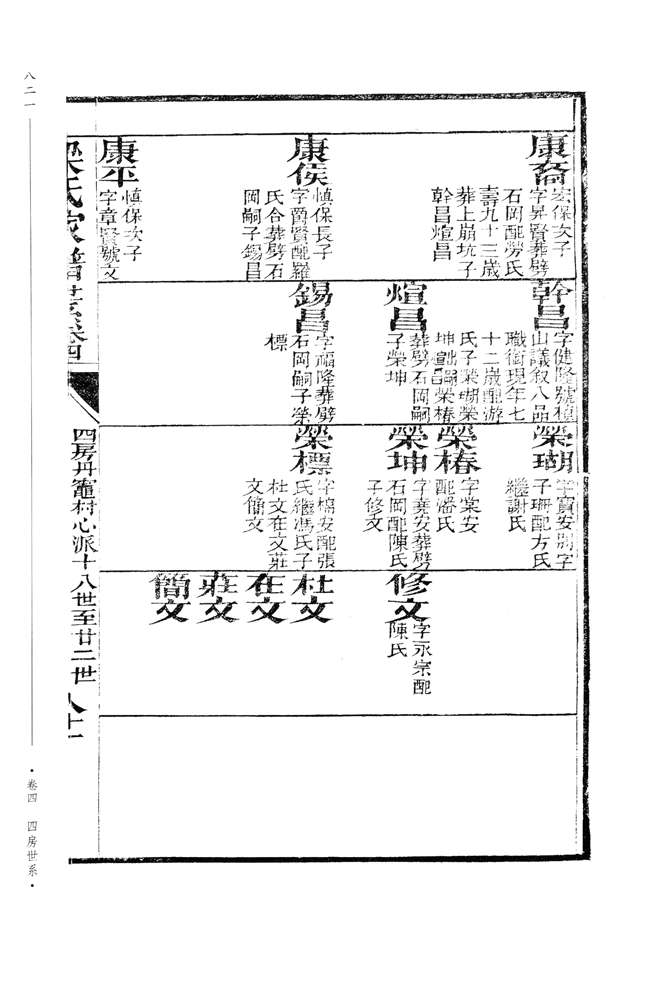 八二一
康裔
宏保次子
字昇賢葬劈
石岡配勞氏
壽九十三歲
葬上崩坑子
幹昌煊昌
康侯
慎保長子
字爵賢配羅
氏合葬劈石
岡嗣子錫昌
康平
慎保次子
字章賢號文
幹昌
字健隆號
山議叙八品
職銜現年七
十二歲配游
氏子榮瑚榮
坤榮椿
煊昌
葬劈石岡嗣
子榮坤
錫昌
字福隆葬劈
石岡嗣子榮
標
榮瑚
字寶安別字
子珊配方氏
繼謝氏
榮椿
字棠安
配潘氏
榮坤
字安葬劈
石岡配陳氏
子修文
榮標
字楊安配張
氏繼馮氏子
杜文在文莊
文簡文
修文
字永宗配
陳氏
杜文
在文
莊文
簡文
梁氏家譜世系卷四
四房丹竈村心派十八世至廿二世
八十一
·卷四 四房世系·